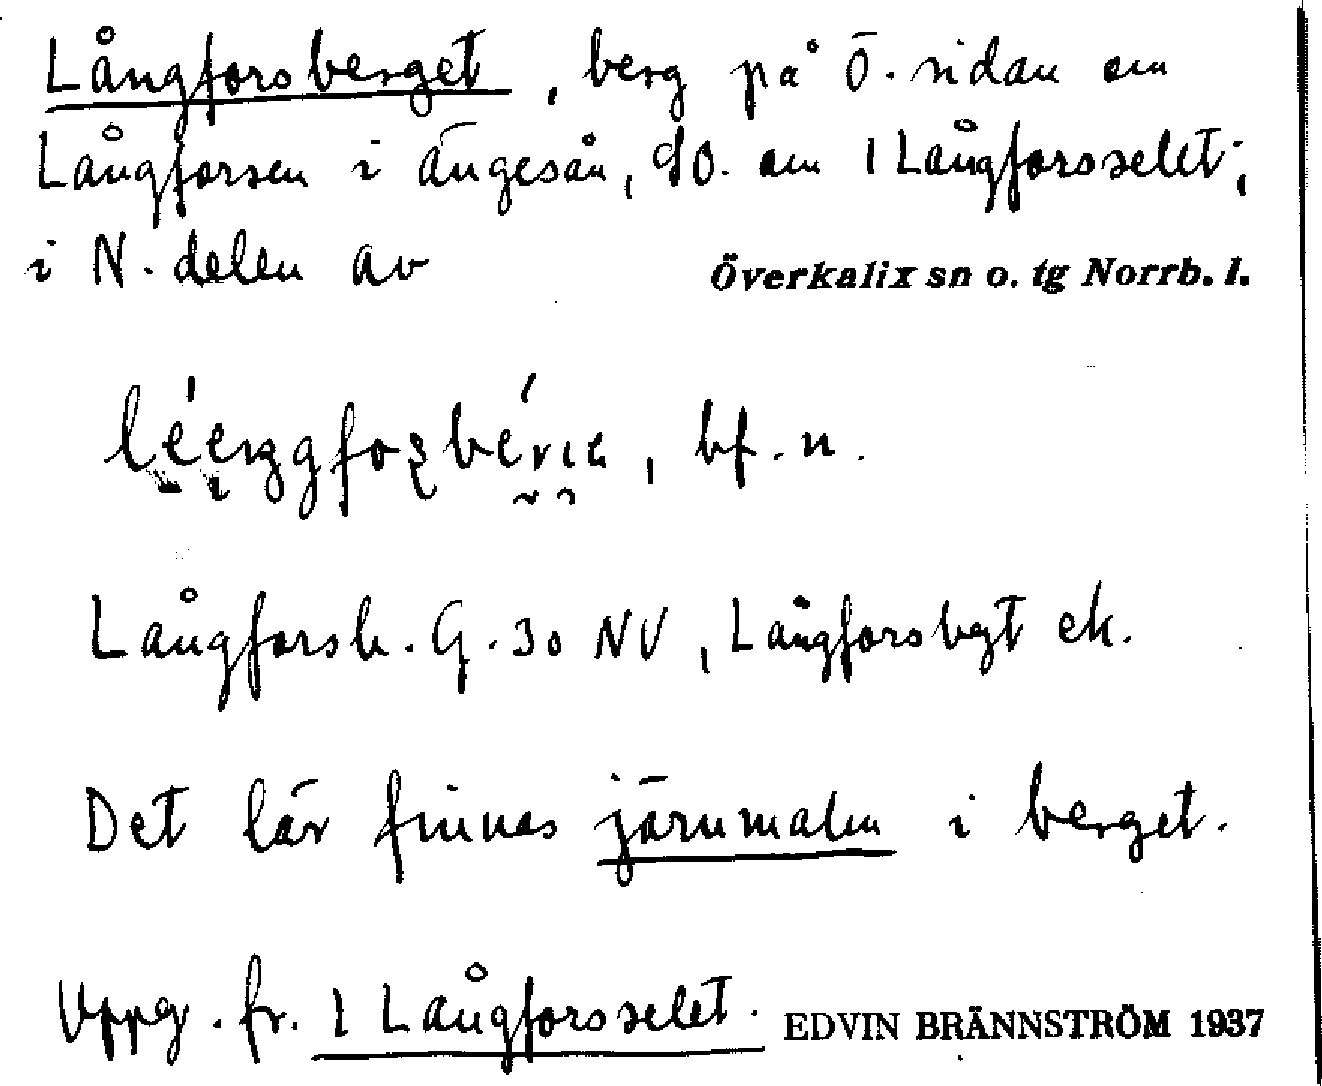 Långforsberget, berg på Ö. sidan om
Långforsen i Ängesån, SO. om 1 Långforsselet;
i N. delen av Överkalix sn o. tg Norrb. l.
bf. n.
Långforsb. G. 30 NV, Långforsbgt ek.
Det lär finnas järnmalm i berget.
Uppg. fr. 1 Långforsselet. EDVIN BRÄNNSTRÖM 1937